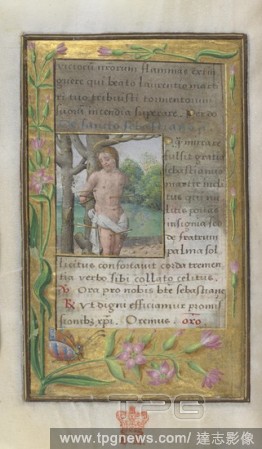 vitiorum nr̄orum flammas extin
guere qui beato laurentio mart
ri tuo tribuisti tormentorum
suorum incendia superare. Per do
De sancto sebastiano
mira
fulsit gratia
sebastianus
martir inclit
litis por
insignia se
de fratrum
palma sol
licitus confortavit corda tremen
tia verbo sibi collato celitus.
V Ora pro nobis bte sebastiane
R Ut digni efficiamur promis
sionibus xp̄i. Oremus. oro
TPG
www.tpgnews.com / 達志影像